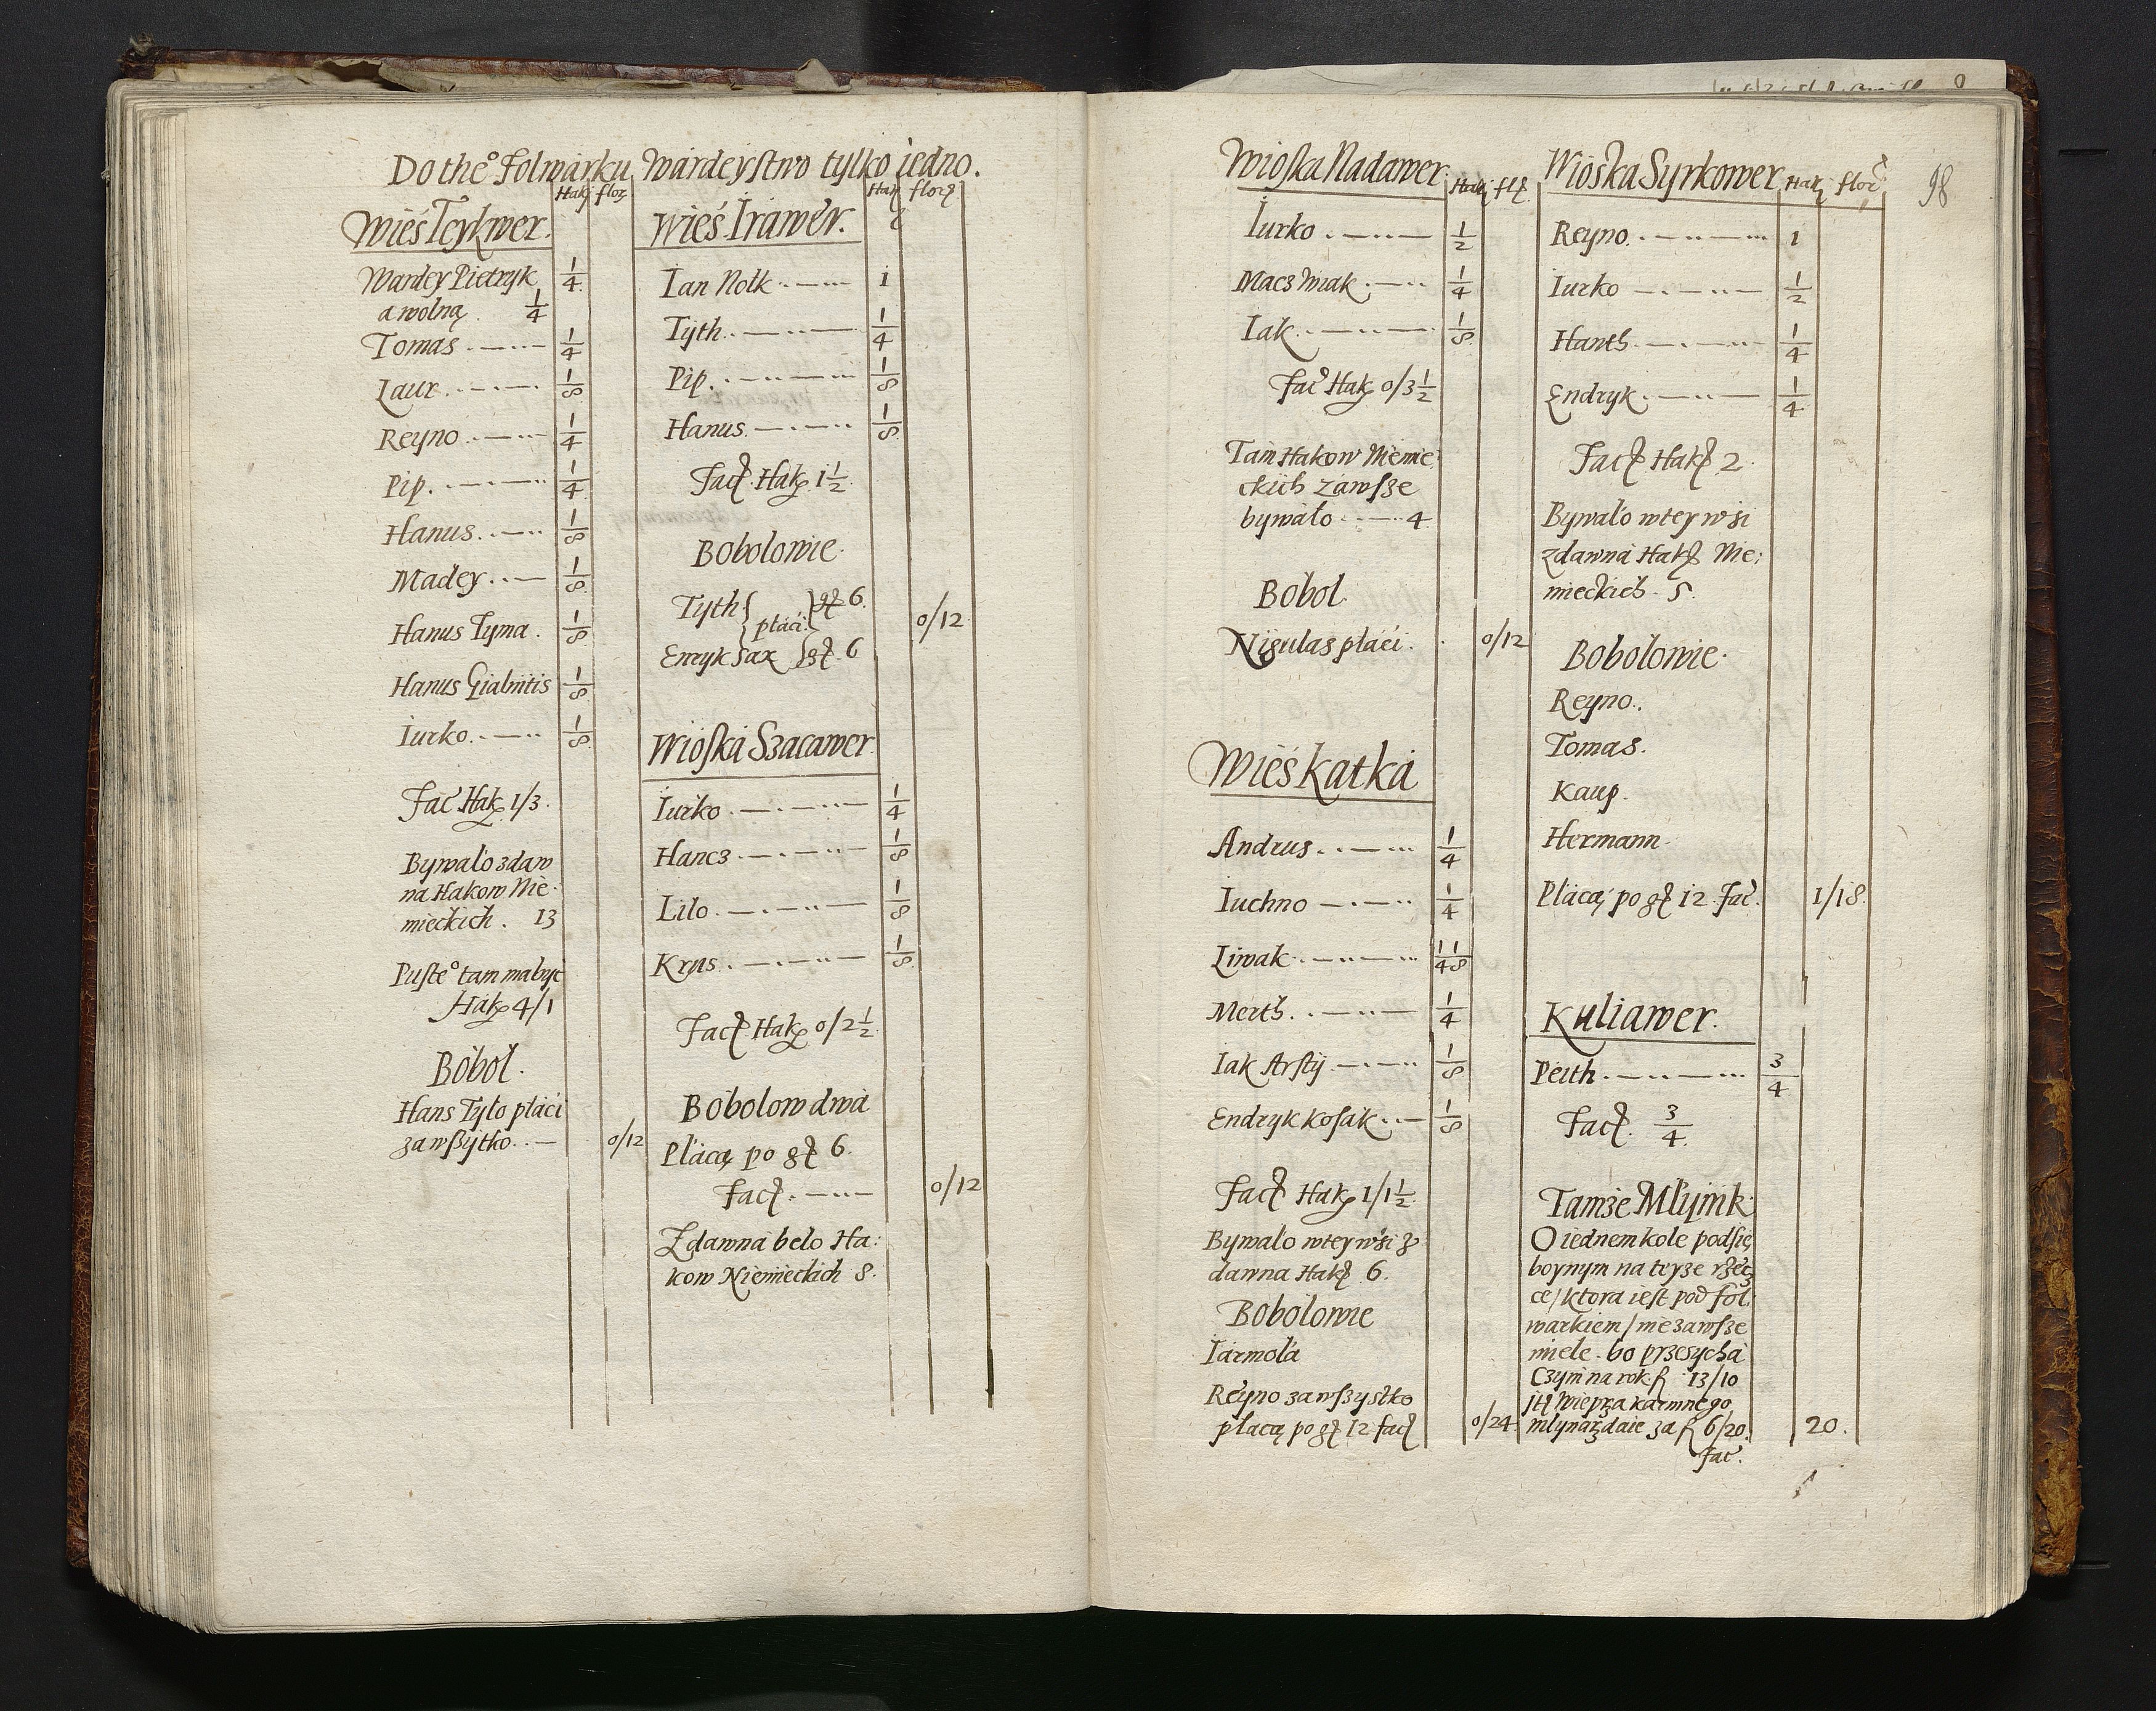 Do the° Folwarku Wardeystwo tylko iedno.
Hak flor
Wieś Teykwer.
Wardey Pietryk 1/4
a wolną. 1/4
Tomas 1/4
Laur. 1/8
Reyno 1/4
Pip. 1/4
Hanus. 1/8
Madey 1/8
Hanus Tyma. 1/8
Hanus Gialnitis 1/8
Iurko. 1/8
Fac Hak 1/3.
Bywało zdaw
na Hakow Nie-
mieckich. 13
Puste° tam ma być
Hak 4/1
Bobol.
Hans Tyło płaci
za wszytko. 0/12
Hak flor
Wieś Irawer.
Ian Nolk 1
Tyth. 1/4
Pip. 1/8
Hanus. 1/8
Fac. Hak 1 1/2
Bobolowie.
Tyth { płaci } g 6.
0/12
Enryk Sax } g 6
Wioska Szacawer
Iurko 1/4
Hancz 1/8
Lilo. 1/8
Krys. 1/8
Fac Hak 0/2 1/2
Bobolow dwa
Płacą po g 6.
fac. 0/12
Z dawna beło Ha:
kow Niemieckich 8.
98
Wioska Nadawer. Hak fl
Iurko 1/2
Maczwiak 1/4
Iak. 1/8
Fac Hak 0/3 1/2
Tam Hakow Niemie:
ckich zawsze
bywało 4
Bobol.
Nigulas płaci. 0/12
Wieś Katka
Andrus. 1/4
Iuchno 1/4
Liwak 1/4 1/8
Merth. 1/4
Iak Arsty 1/8
Endryk Kosak 1/8
Fac Hak 1/1 1/2
Bywało w tey wsi z
dawna Hak 6.
Bobolowie
Iarmoła
Reyno za wszystko
płacą po g 12 fac 0/24
Wioska Syrkower Hak flor
Reyno. 1
Iurko 1/2
Hanth 1/4
Endryk. 1/4
Fac Hak 2.
Bywało w tey wsi
zdawna Hak Nie:
mieckich. 5.
Bobolowie.
Reyno.
Tomas.
Kaup.
Hermann.
Płacą po g 12 fac. 1/18.
Kuliawer.
Peith. 3/4
Fac. 3/4.
Tamże Młynik
O iednem kole podsię
boynym na teyże rzec
ce/ ktora iest pod fol:
warkiem/ nie zawsze
miele. bo przesycha
Czyni na rok f 13/10
it wieprza karmnego
młynarz daie za f 6/20. 20.
fac.